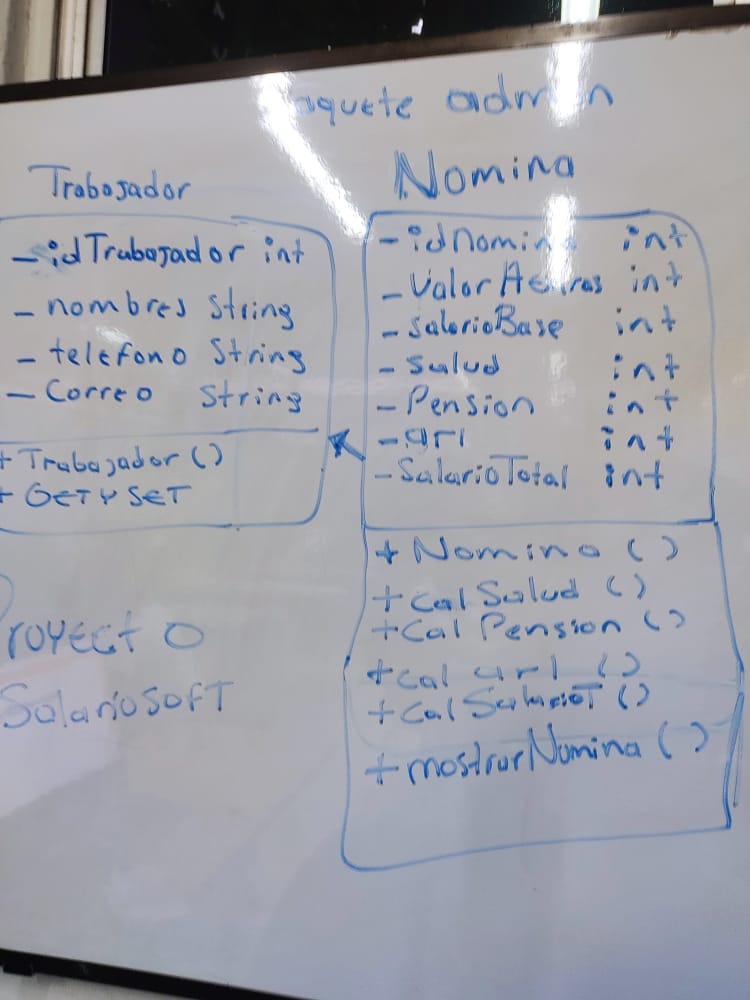 aquete admin
Trabajador
- idTrabajador int
- nombres String
- telefono String
- Correo String
+ Trabajador ()
+ GET Y SET
royecto
SalarioSoft
Nomina
- idNomina int
- Valor int
- salarioBase int
- Salud int
- Pension int
- arl int
- SalarioTotal int
+ Nomina ()
+ Cal Salud ()
+ Cal Pension ()
+ cal arl ()
+ Cal SalarioT ()
+ mostrarNomina ()